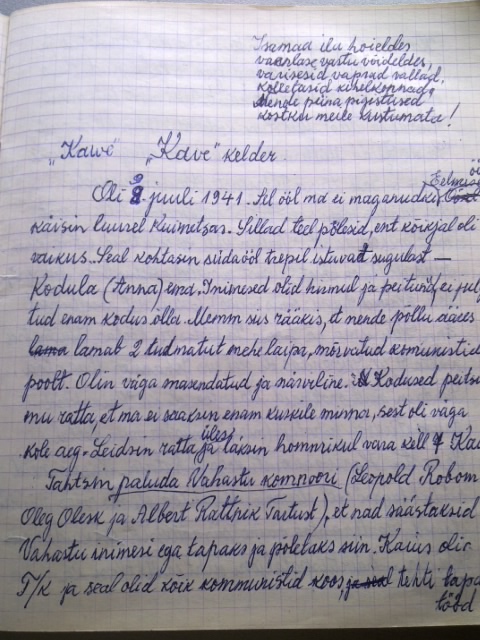 Isamad ilu hoieldes
vaenlase vastu võideldes,
varisesid vaprad vallad,
kolletasid kihelkonnad.
Nende piina pigistused
kostku meile kustumata!
„Kawe" „Kave" kelder.
Oli 9. juuli 1941. Sel ööl ma ei maganudki. Eelmise
käisin luurel Kuimetsas. Sillad teel põlesid, ent kõikjal oli
vaikus. Seal kohtasin südaööl trepil istuvat sugulast —
Kodula (Anna) ema. Inimesed olid hirmul ja peitund, ei jul
tud enam kodus olla. Memm siis rääkis, et nende põllu ääres
lama lamab 2 tudmatut mehe laipa, mõrvatud kommunistid
poolt. Olin väga masendatud ja närviline. Kodused peitsi
mu ratta, et ma ei saaksin enam kuskile minna, sest oli väga
kole aeg. Leidsin ratta üles ja läksin hommikul vara kell 4
Tahtsin paluda Vahastu komnoori (Leopold Robom
Oleg Olesk ja Albert Rattpik Tartust), et nad säästaksid
Vahastu inimesi ega tapaks ja põletaks siin. Kaius olin
T/k ja seal olid kõik kommunistid koos, ja seal tehti tapa
tööd